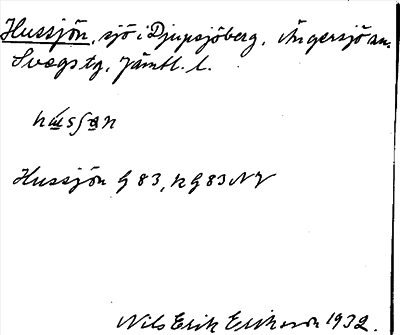 Hussjön, sjö i Djupsjöberg, Ängersjö an.
Svegs tg, Jämtl. l.
Hussjön G 83, k G 83 NV
Nils Erik Erikson 1932.